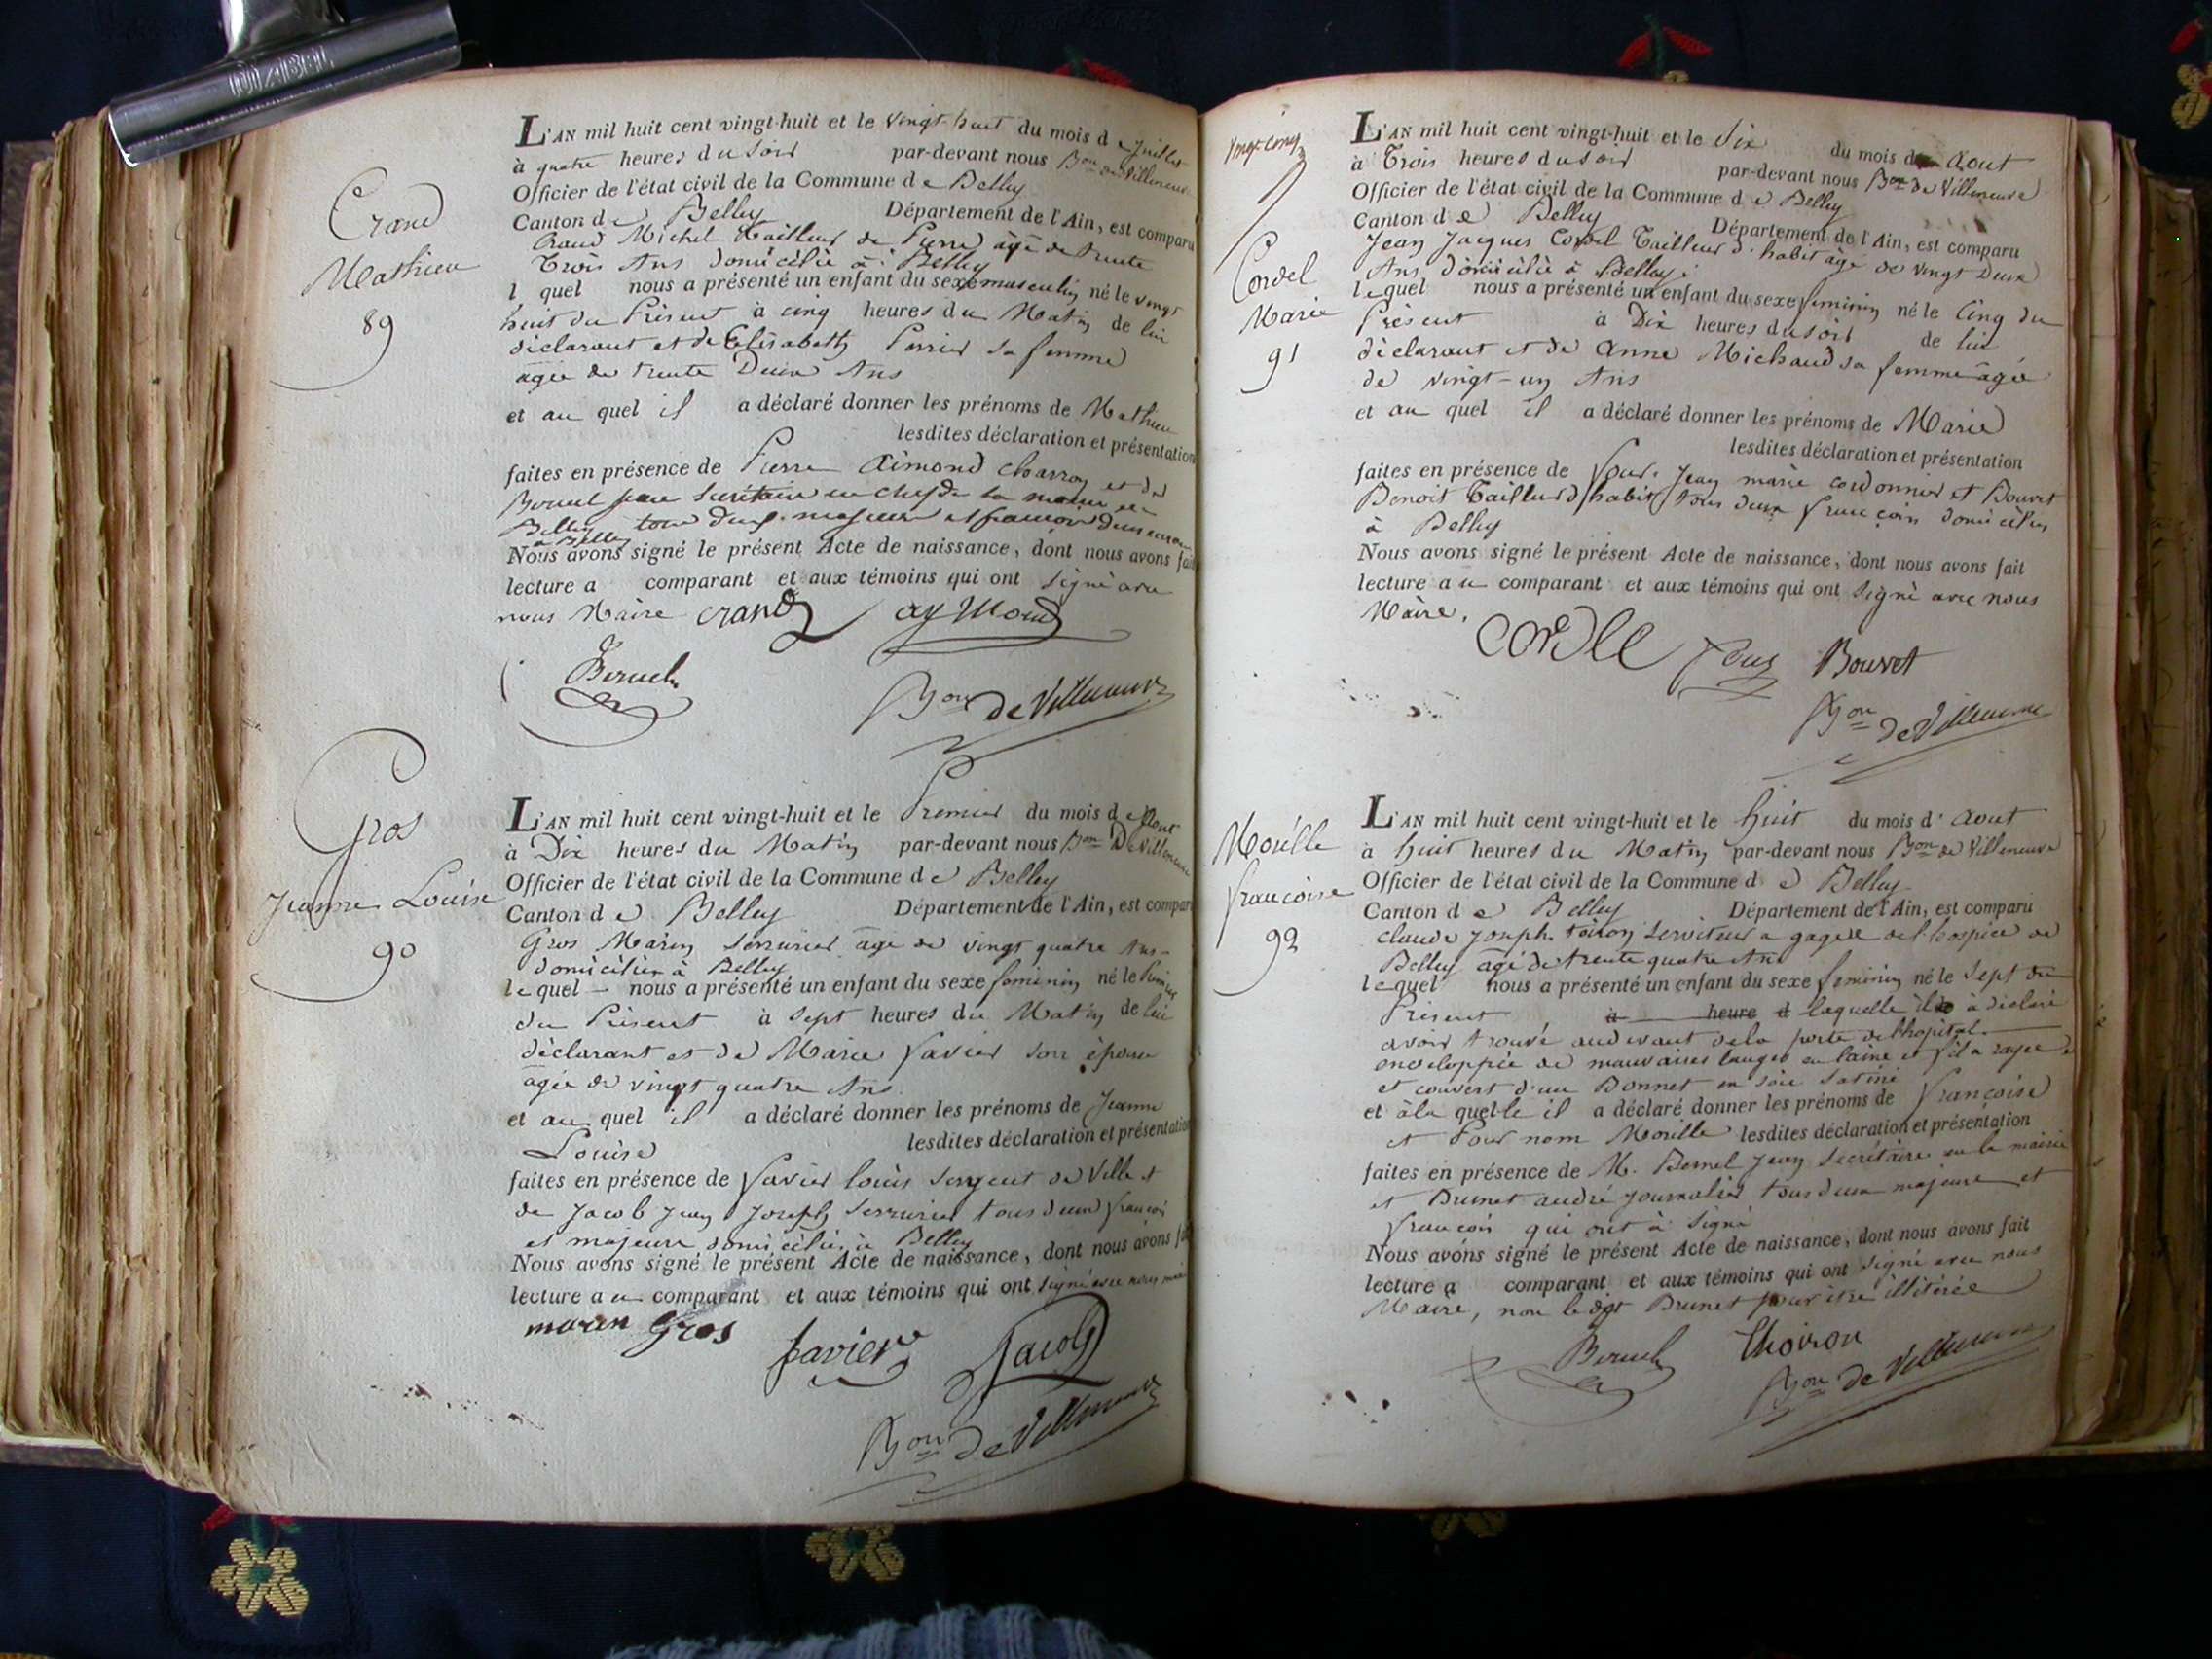 DIABEL
Crand
Mathieu
89
L'AN mil huit cent vingt-huit et le vingt-huit du mois de juillet
à quatre heures du soir par-devant nous Bon de Villeneuve
Officier de l'état civil de la Commune de Belley
Canton de Belley Département de l'Ain, est comparu
Crand Michel tailleur de Pierre âgé de trente
trois Ans domicilié à Belley
l quel nous a présenté un enfant du sexe masculin né le vingt
huit du Présent à cinq heures du Matin de lui
déclarant et de Elisabeth Perrier sa femme
agée de trente Deux Ans
et au quel il a déclaré donner les prénoms de Mathieu
lesdites déclaration et présentation
faites en présence de Pierre Aimond charron et de
secrétaire en chef de la mairie de
Belley tous deux majeurs et
à Belley
Nous avons signé le présent Acte de naissance, dont nous avons fait
lecture a comparant et aux témoins qui ont signé avec
nous Maire crand aymond
Bon de Villeneuve
Gros
Jeanne Louise
90
L'AN mil huit cent vingt-huit et le Premier du mois d'Aout
à Dix heures du Matin par-devant nous Bon De Villeneuve
Officier de l'état civil de la Commune de Belley
Canton de Belley Département de l'Ain, est compar
Gros Marin serrurier âgé de vingt quatre Ans
domicilié à Belley
lequel nous a présenté un enfant du sexe feminin né le Premier
du Présent à sept heures du Matin de lui
déclarant et de Marie Favier son épouse
agée de vingt quatre Ans
et au quel il a déclaré donner les prénoms de Jeanne
Louise lesdites déclaration et présentation
faites en présence de Favier louis sergent de Ville et
de Jacob Jean Joseph serrurier tous deux françois
et majeurs domiciliés à Belley
Nous avons signé le présent Acte de naissance, dont nous avons f
lecture au comparant et aux témoins qui ont signé avec nous
maren Gros favier Jacob
Bon de Villeneuve
vingt-cinq
Cordel
Marie
91
L'AN mil huit cent vingt-huit et le Six du mois d Aout
à Trois heures du soir par-devant nous Bon de Villeneuve
Officier de l'état civil de la Commune de Belley
Canton de Belley Département de l'Ain, est comparu
Jean Jacques Cordel Tailleur d'habit âgé de vingt Deux
Ans, domicilié à Belley
lequel nous a présenté un enfant du sexe feminin né le Cinq du
Présent à Dix heures du soir de lui
déclarant et de Anne Michaud sa femme âgée
de vingt-un Ans
et au quel il a déclaré donner les prénoms de Marie
lesdites déclaration et présentation
faites en présence de Jean marie cordonnier et Bouvet
Benoit Tailleur d'habit tous deux françois domiciliés
à Belley
Nous avons signé le présent Acte de naissance, dont nous avons fait
lecture au comparant et aux témoins qui ont signé avec nous
Maire.
cordel Bouvet
Bon de Villeneuve
Morille
françoise
92
L'AN mil huit cent vingt-huit et le huit du mois d'Aout
à huit heures du Matin par-devant nous Bon de Villeneuve
Officier de l'état civil de la Commune de Belley
Canton de Belley Département de l'Ain, est comparu
claude joseph serviteur a gages de l'hospice de
Belley âgé de trente quatre Ans
lequel nous a présenté un enfant du sexe feminin né le sept du
Présent à heure d laquelle il à déclaré
avoir trouvé audevant de la porte de l'hopital
enveloppée de mauvaises langes en laine et
et couvert d'un Bonnet en soie satiné
et à la quelle il a déclaré donner les prénoms de françoise
et Pour nom Morille lesdites déclaration et présentation
faites en présence de M. Bernel Jean Secrétaire en la mairie
et Brunet andré journalier tous deux majeurs et
françois qui ont à signé
Nous avons signé le présent Acte de naissance, dont nous avons fait
lecture a comparant et aux témoins qui ont signé avec nous
Maire, non le dit Brunet pour être illitérée
Thoiron
Bon de Villeneuve